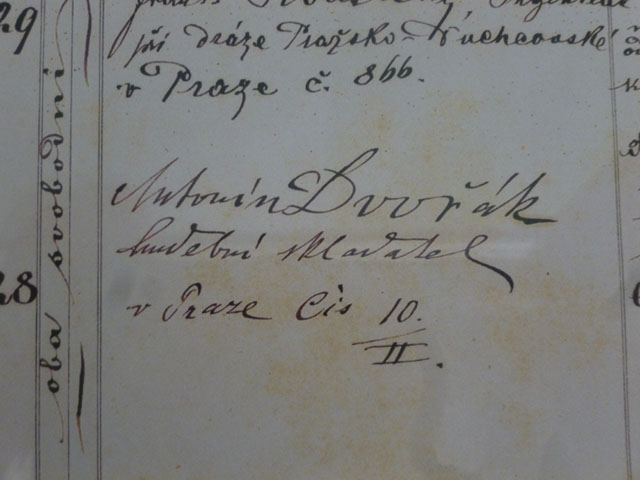 29
při dráze Pražsko-Duchcovské
v Praze č. 866.
Antonín Dvořák
hudební skladatel
v Praze Čís 10.
II.
28
oba svobodni